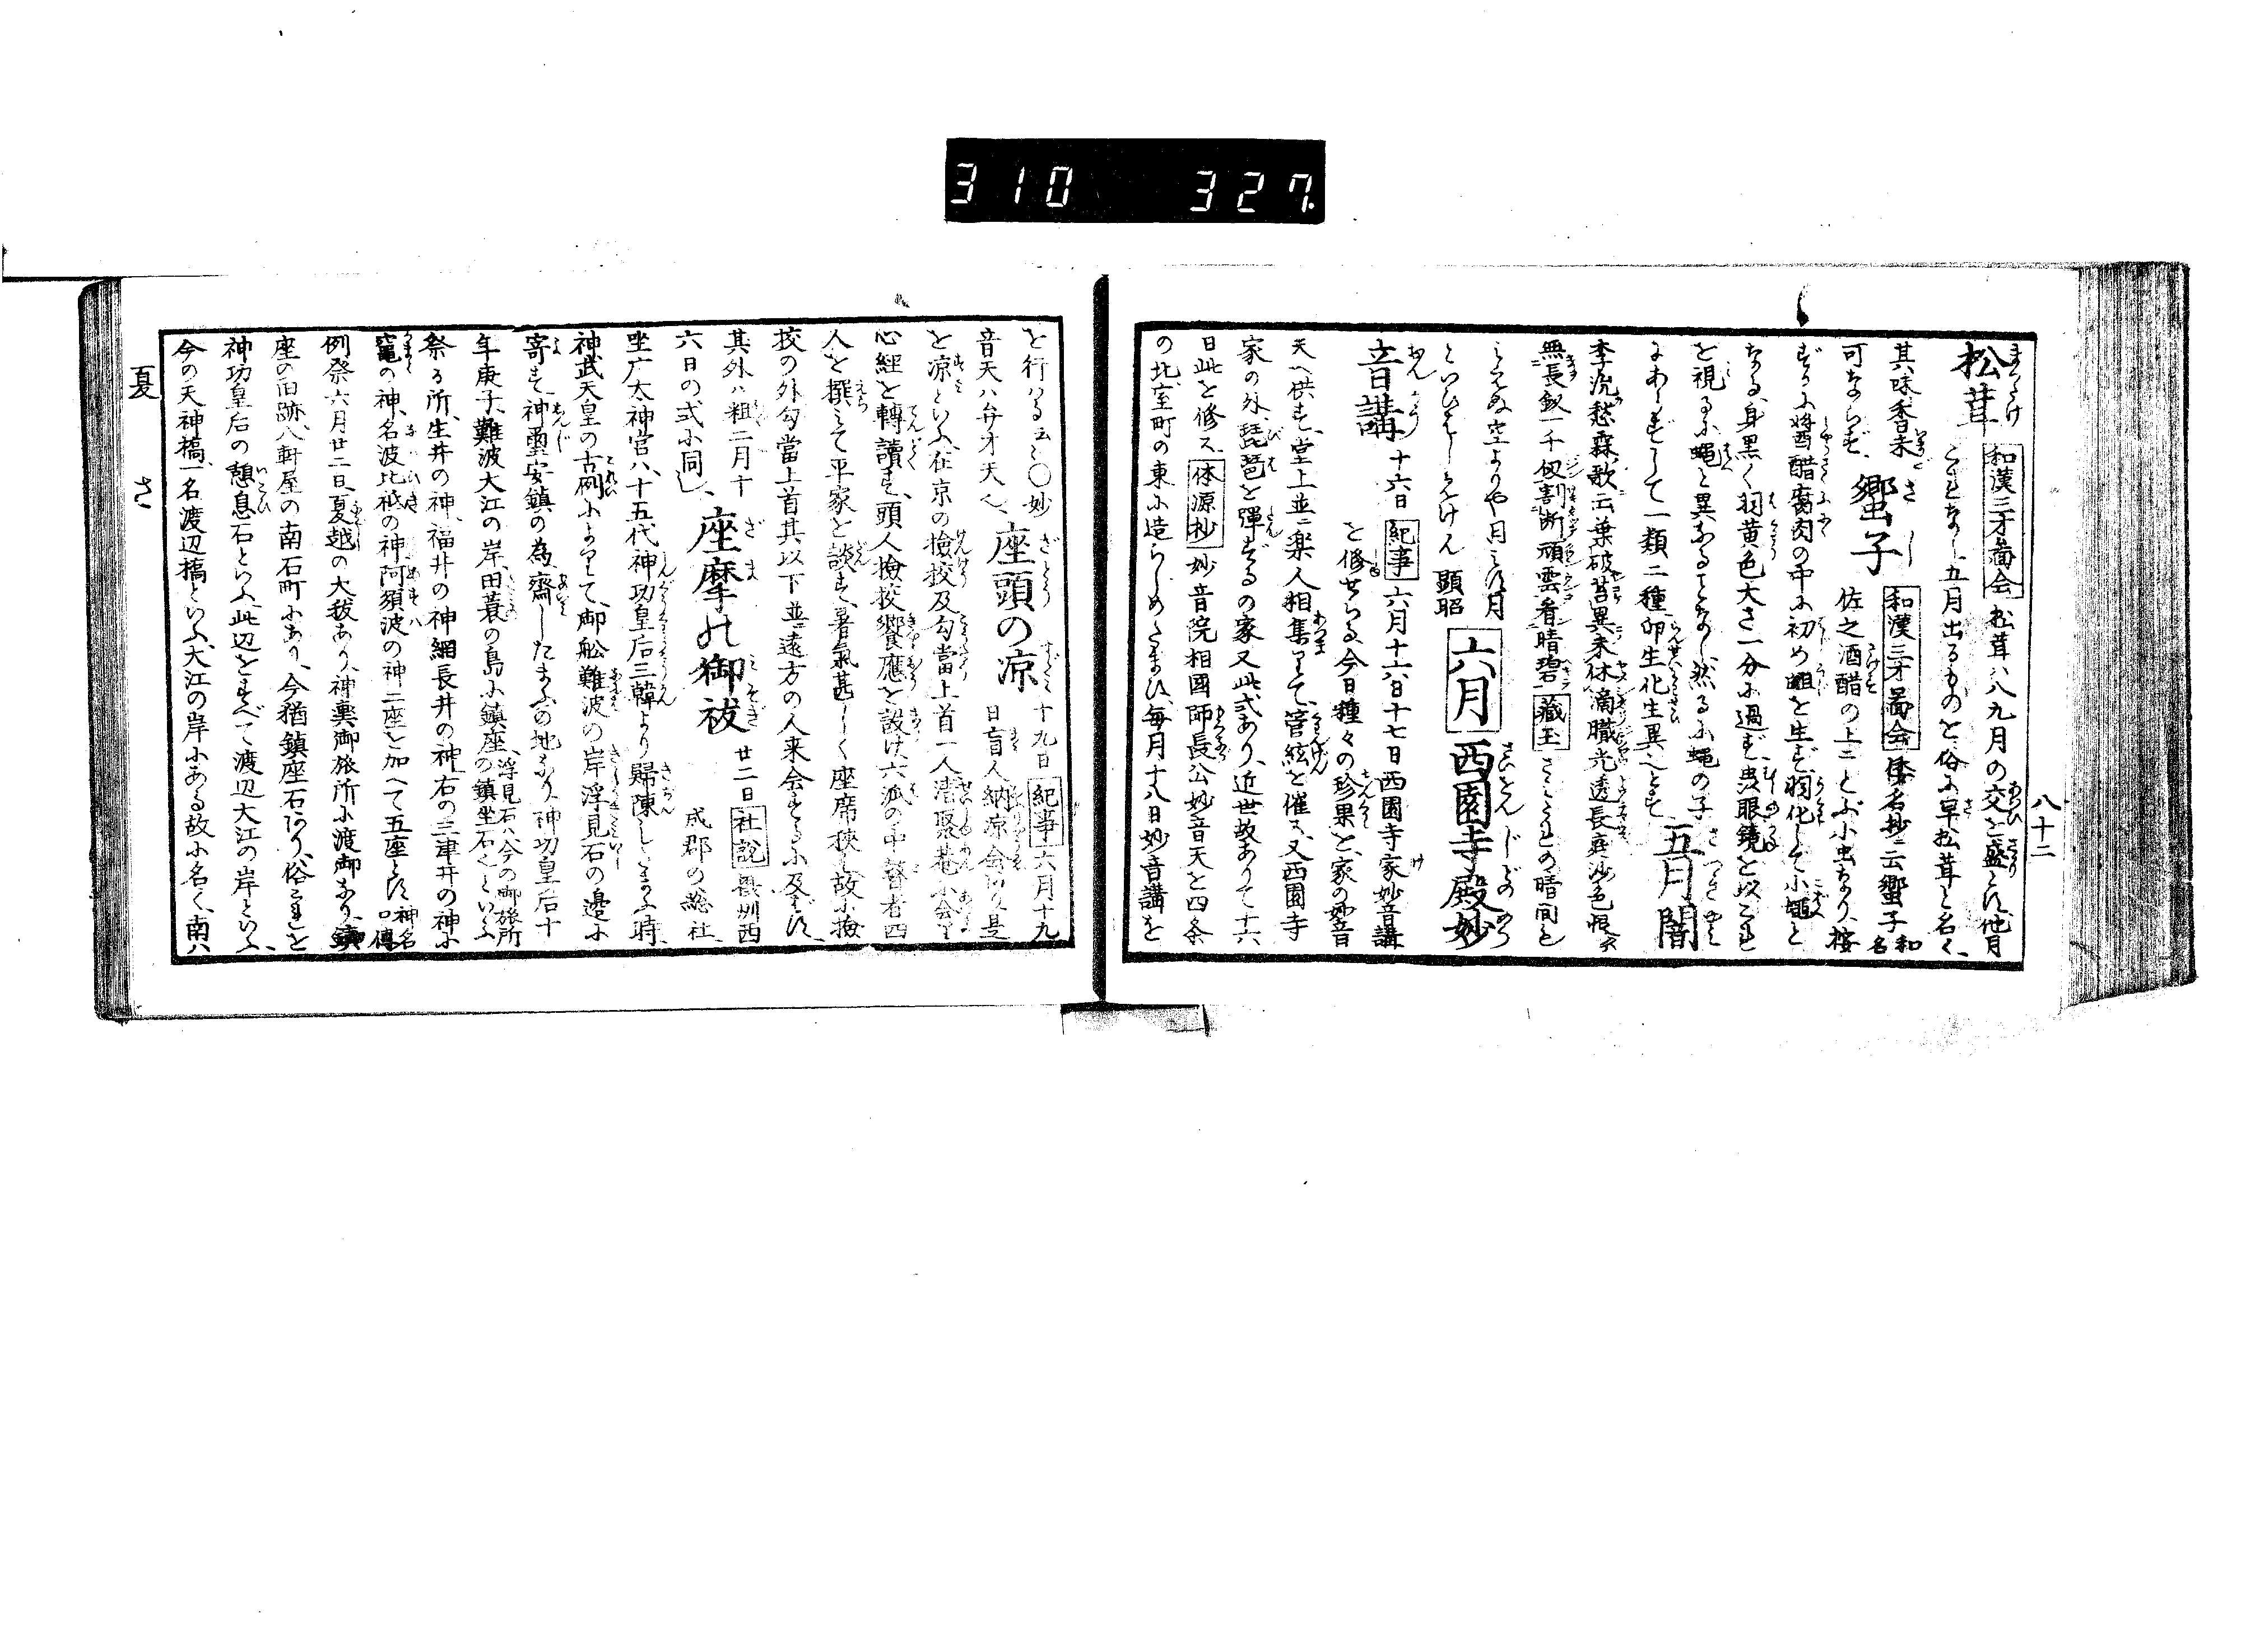 310 327
八十二
松茸 和漢三才圖会 松茸ハ八九月の交を盛とす他月
これなし五月出るものを俗に早松茸と名く、
其味香未 蠁子 和漢三才圖会 倭名抄云蠁子 和名
可ならず、 佐之酒醋の上ニとぶ小虫なり、按
ずるに醬醋腐肉の中に初め蛆を生ず羽化して小蠅と
なる、身黒く羽黄色大さ一分に過ず虫眼鏡を以これ
を視るに蠅と異なることなし、然るに蠅の子 五月闇
にあらずして一類二種卵生化生異へとす
李洸愁霖歌云葉破苔黄未休滴朦光透長庭沙色恨
無長釼一千仭割断頑雲看晴碧 藏玉 さみだれの晴間も
みえぬ空よりや月みず月
といひはじめけん 顕昭 六月 西園寺殿妙
音講 十六日 紀事 六月十六日十七日西園寺家妙音講
を修せらる、今日種々の珍果を、家の妙音
天へ供す、堂上並ニ楽人相集りて、管絃を催す、又西園寺
家の外、琵琶を彈ずるの家又此式あり、近世故ありて十六
日此を修ス 体源抄 妙音院相國師長公妙音天を四条
の北、室町の東に造らしめたまひ、毎月十八日妙音講を
を行はる云々〇妙 座頭の凉 十九日 紀事 六月十九
音天ハ弁才天也、 日盲人納凉会あり、是
を凉といふ、在京の撿挍及勾當上首一人清聚菴に会し
心經を轉讀す、頭人撿挍饗應を設け六派の中瞽者四
人を撰みて平家を談ず、暑氣甚しく座席狹き故に撿
挍の外勾當上首其以下並ニ遠方の人来会するに及ばず、
其外ハ粗二月十 座摩の御祓 廿二日 社説 攝州西
六日の式に同し、 成郡の惣社、
坐广太神宮ハ、十五代神功皇后三韓より歸陳しさまふ時、
神武天皇の古例によりて、御舩難波の岸浮見石の邊に
寄す、神靈安鎮の為、齋したまふの地なり、神功皇后十
年庚子、難波大江の岸、田蓑の島に鎮座、浮見石ハ、今の御旅所の鎮坐石也といふ
祭る所、生井の神、福井の神綱長井の神、右の三津井の神に
竈の神、名波比祇の神阿須波の神二座を加へて五座とす 神名口傳
例祭六月廿二日夏越の大祓あり、神輿御旅所に渡御あり、鎮
座の旧跡、八軒屋の南石町にあり、今猶鎮座石あり、俗これを
神功皇后の憩息石といふ、此辺をすべて渡辺大江の岸といふ、
今の天神橋、一名渡辺橋といふ、大江の岸にある故に名く、南ハ
夏 さ